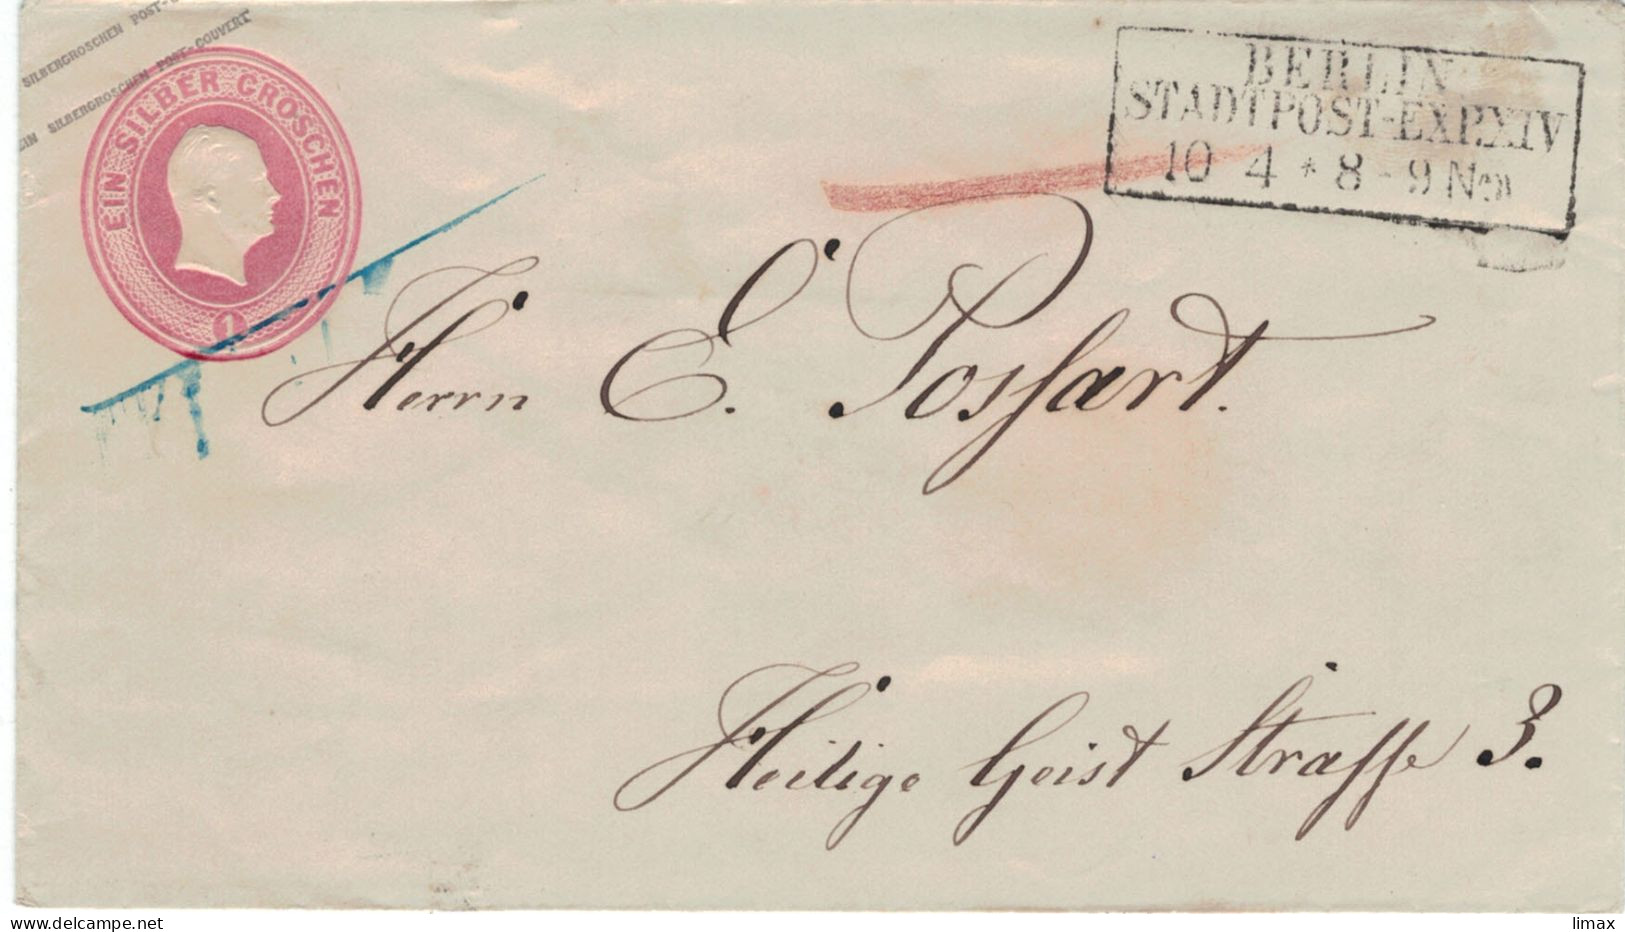 SILBERGROSCHEN POST-
EIN SILBERGROSCHEN POST-COUVERT
EIN SILBER GROSCHEN
1
BERLIN
STADTPOST-EXP.XIV
10 4 * 8 - 9 N
Herrn E. Possart.
Heilige Geist Strasse 3.
delcampe.net
limax